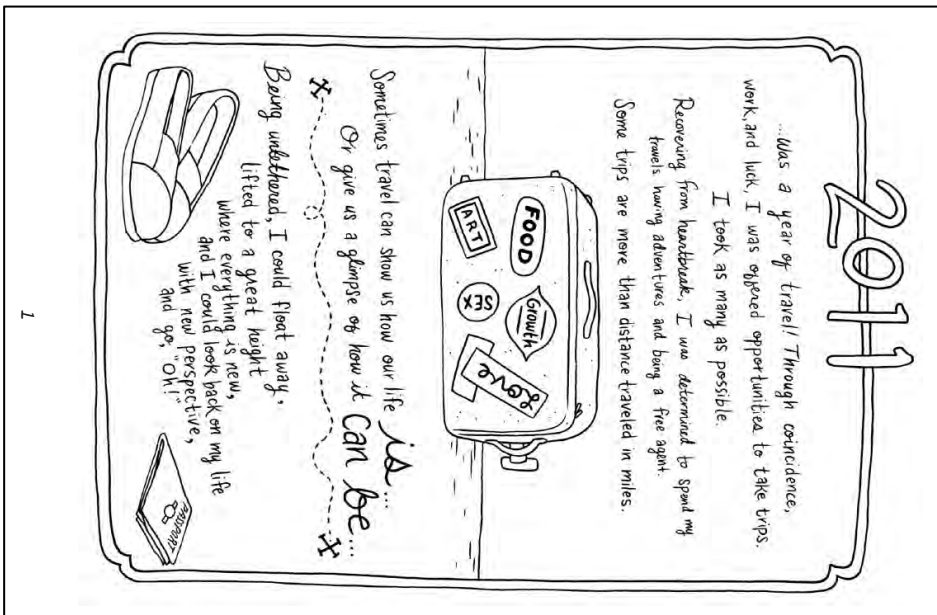 2011
...Was a year of travel! Through coincidence,
work, and luck, I was offered opportunities to take trips.
I took as many as possible.
Recovering from heartbreak, I was determined to spend my
travels having adventures and being a free agent.
Some trips are more than distance traveled in miles.
FOOD
Growth
LOVE
ART
SEX
Sometimes travel can show us how our life is...
Or give us a glimpse of how it can be...
Being untethered, I could float away,
lifted to a great height
where everything is new,
and I could look back on my life
with new perspective,
and go, "Oh!"
PASSPORT
1